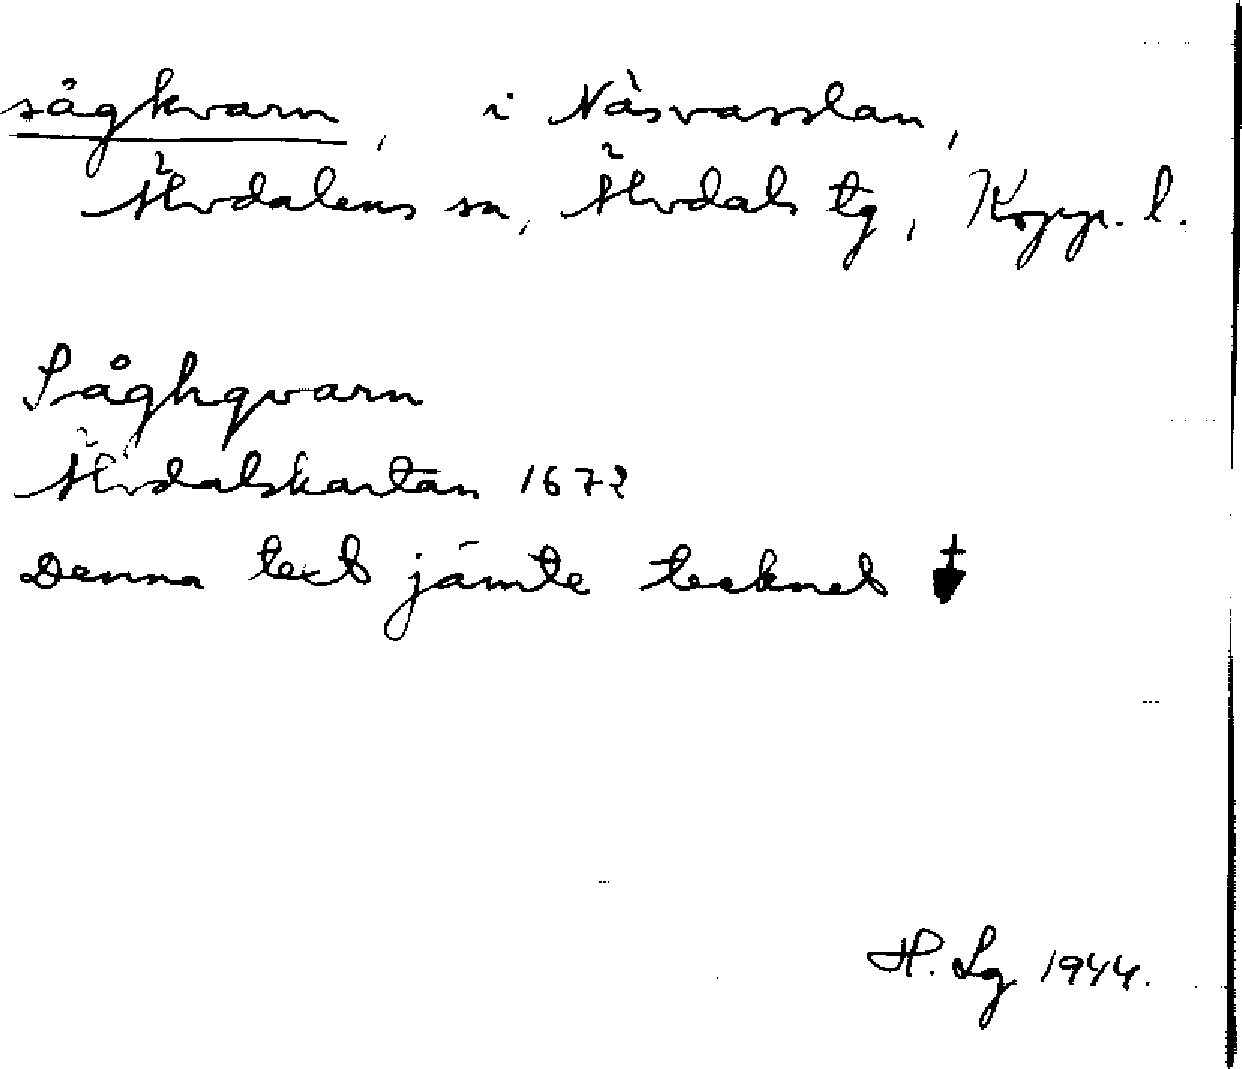 sågkvarn, i Näsvasslan,
Älvdalens sn, Älvdals tg, Kopp. l.
Såghqvarn
Älvdalskartan 1672
Denna text jämte tecknet
H. Lg 1944.